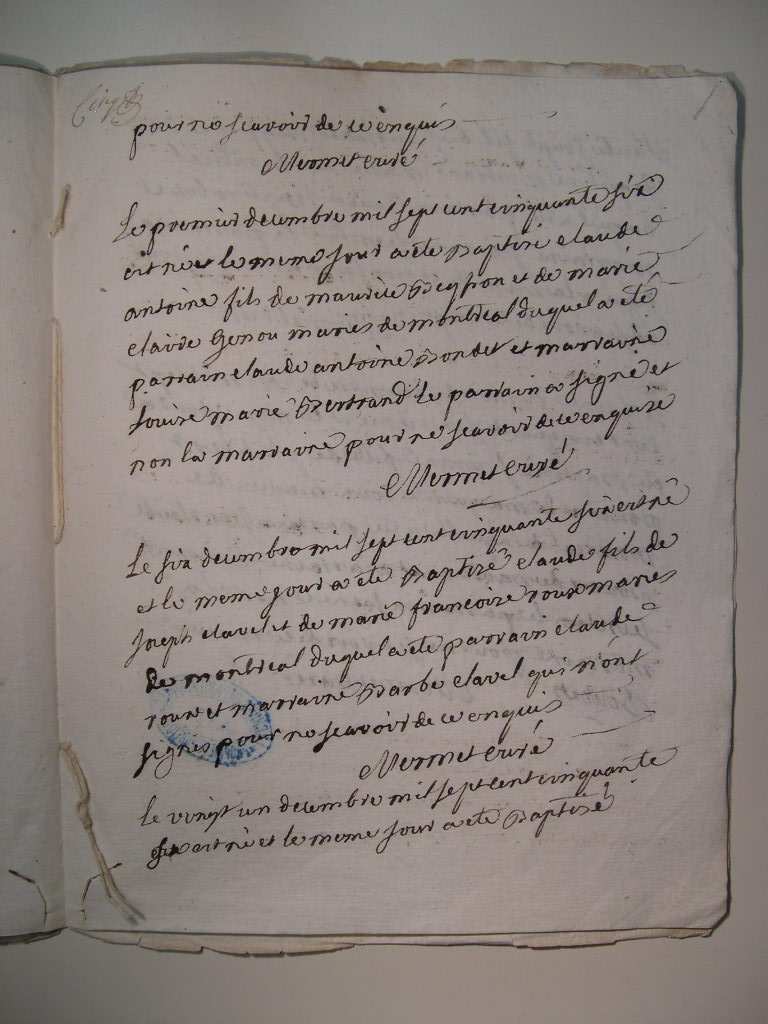 pour ne scavoir de ce enquis
Mermet curé
Le premier decembre mil sept cent cinquante six
est né et le meme jour a ete Baptisé claude
antoine fils de maurice et de marie
claude Genou mariés de montreal duquel a été
parrain claude antoine Bondet et marraine
louise marie Bertrand le parrain a signé et
non la marraine pour ne scavoir de ce enquise
Mermet curé
Le six decembre mil sept cent cinquante six est né
et le meme jour a ete Baptisé claude fils de
joseph clavel et de marie francoise roux mariés
de montreal duquel a ete parrain claude
roux et marraine Barbe clavel qui n'ont
signés pour ne scavoir de ce enquis
Mermet curé
le vingt un decembre mil sept cent cinquante
six est né et le meme jour a ete Baptisé